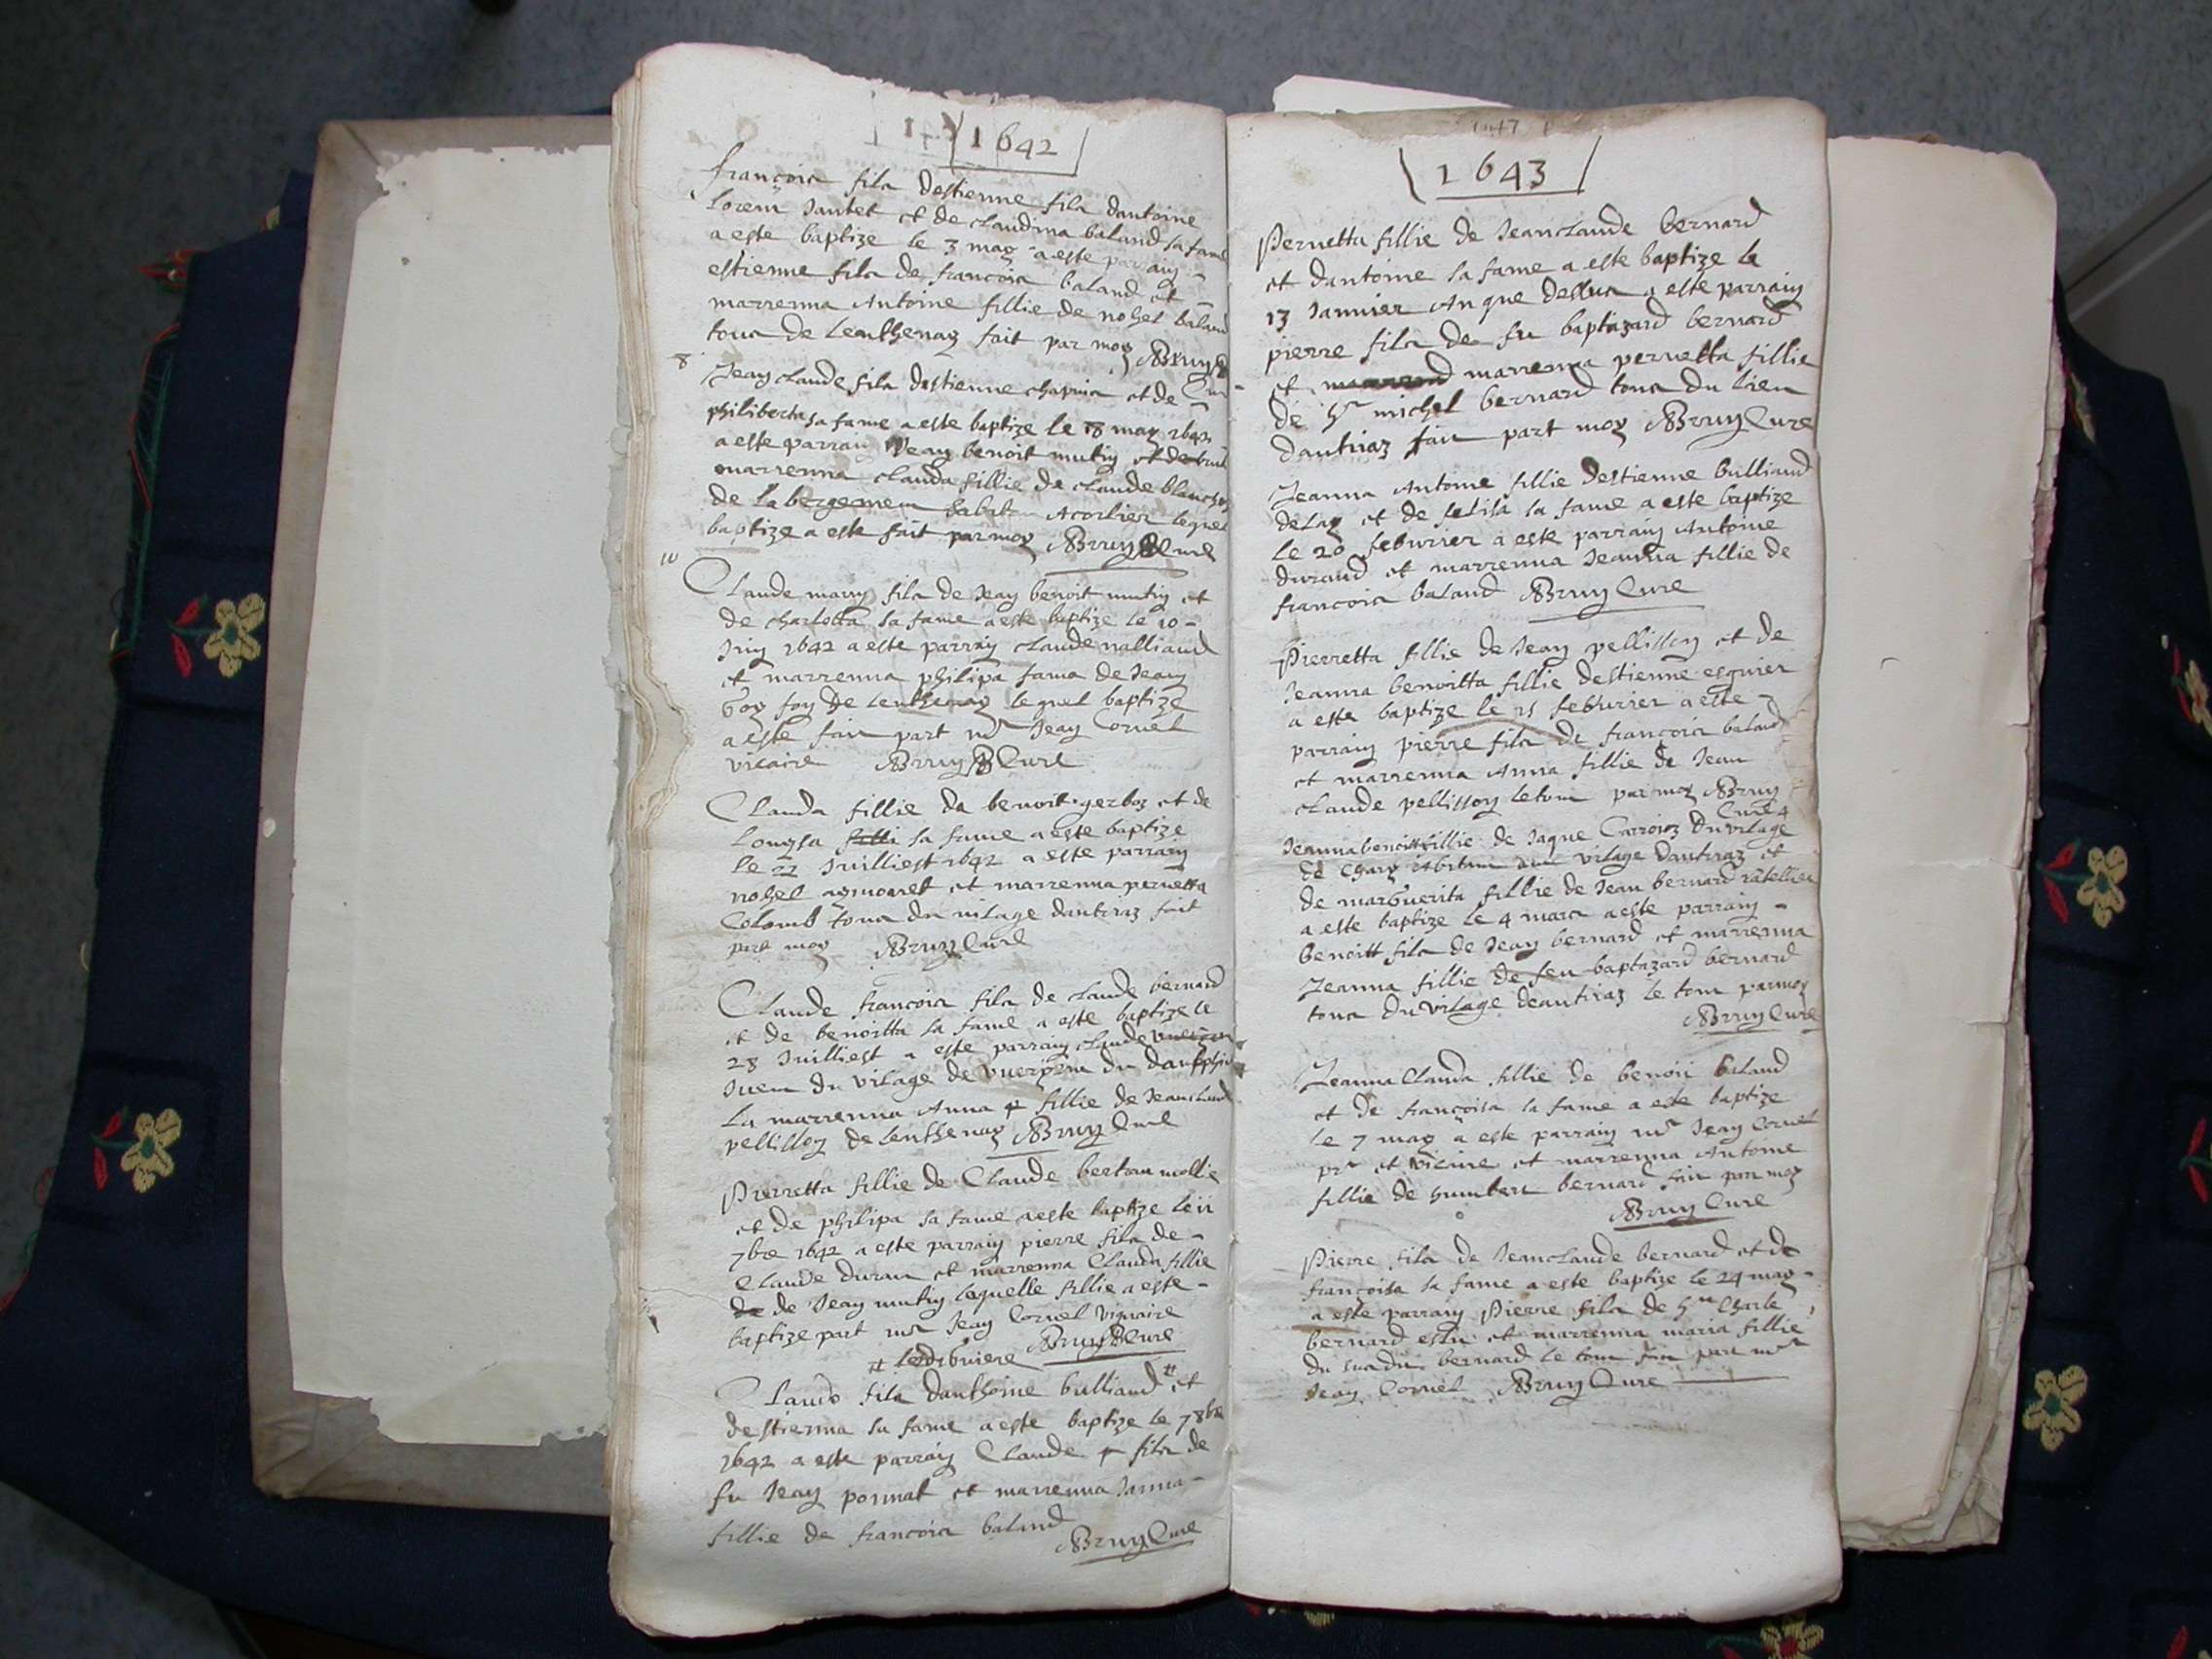 1642
françois fils destienne fils dantoine
lorem Jantet et de claudina baland sa fame
a este baptize le 3 may a este parrain
estienne fils de françois baland et
marrenna Antoine fillie de nohel baland
tous de Lenthenay fait par moy Bruy
8
Jean claude fils destienne chapuis et de
philiberta sa fame a este baptize le 18 may 1642
a este parrain Jean benoit mutin et
marrenna clauda fillie de claude blanchon
de la bergement Acorlier lequel
baptize a este fait par moy Bruy Cure
10
Claude marin fils de Jean benoit mutin et
de charlotta sa fame a este baptize le 10
Juin 1642 a este parrain claude nalliaud
et marrenna philipa fama de Jean
foy de Lenthenay lequel baptize
a este fait part mr Jean Cornel
vicaire Bruy Cure
Clauda fillie de benoit gerboz et de
Louysa filli sa fame a este baptize
le 22 Juilliest 1642 a este parrain
nohel aymonet et marrenna pernetta
Colomb tous du vilage dantiraz fait
part moy Bruy Cure
Claude françois fils de claude bernard
et de benoitta sa fame a este baptize le
28 Juilliest a este parrain claude
du vilage de du dauphin
La marrenna Anna fillie de Jeanclaude
pellisson de Lenthenay Bruy Cure
Pierretta fillie de Claude bertrau mollie
et de philipa sa fame a este baptize le 11
7bre 1642 a este parrain pierre fils de
Claude duran et marrenna Clauda fillie
de de Jean mutin lequelle fillie a este
baptize part mr Jean Cornel vignaire
Bruy Cure
Claude fils danthoine bulliand et
destienna sa fame a este baptize le 7 8bre
1642 a este parrain Claude fils de
fu Jean ponnat et marrenna Janna
fillie de françois baland
Bruy Cure
1643
Pernetta fillie de Jeanclaude bernard
et dantoine sa fame a este baptize le
13 Janvier Anque dessus a este parrain
pierre fils de fu baptazard bernard
et marrenna pernetta fillie
de hr michel bernard tous du lieu
dantiraz fait part moy Bruy Cure
Jeanna Antoine fillie destienne bulliand
delay et de felisa sa fame a este baptize
le 20 feburier a este parrain Antoine
durand et marrenna Jeanna fillie de
françois baland Bruy Cure
Pierretta fillie de Jean pellisson et de
Jeanna benoitta fillie destienne esquier
a este baptize le 25 feburier a este
parrain pierre fils de françois baland
et marrenna Anna fillie de Jean
claude pellisson letout par moy Bruy
Cure
Jeannabenoitt fillie de Jaque Carroz du vilage
de Charix vilage dantiraz et
de marguerita fillie de Jean bernard ratellier
a este baptize le 4 mars a este parrain
benoitt fils de Jean bernard et marrenna
Jeanna fillie de feu baptazard bernard
tous du vilage deantiraz le tout par moy
Bruy Cure
Jeanna Clauda fillie de benoit baland
et de françoisa sa fame a este baptize
le 7 may a este parrain mr Jean Cornel
pr et vicaire et marrenna Antoine
fillie de humbert bernard fait par moy
Bruy Cure
Pierre fils de Jeanclaude bernard et de
françoisa sa fame a este baptize le 24 may
a este parrain Pierre fils de hr Charle
bernard eslu et marrenna maria fillie
du susdit bernard le tout fait part mr
Jean Cornel Bruy Cure